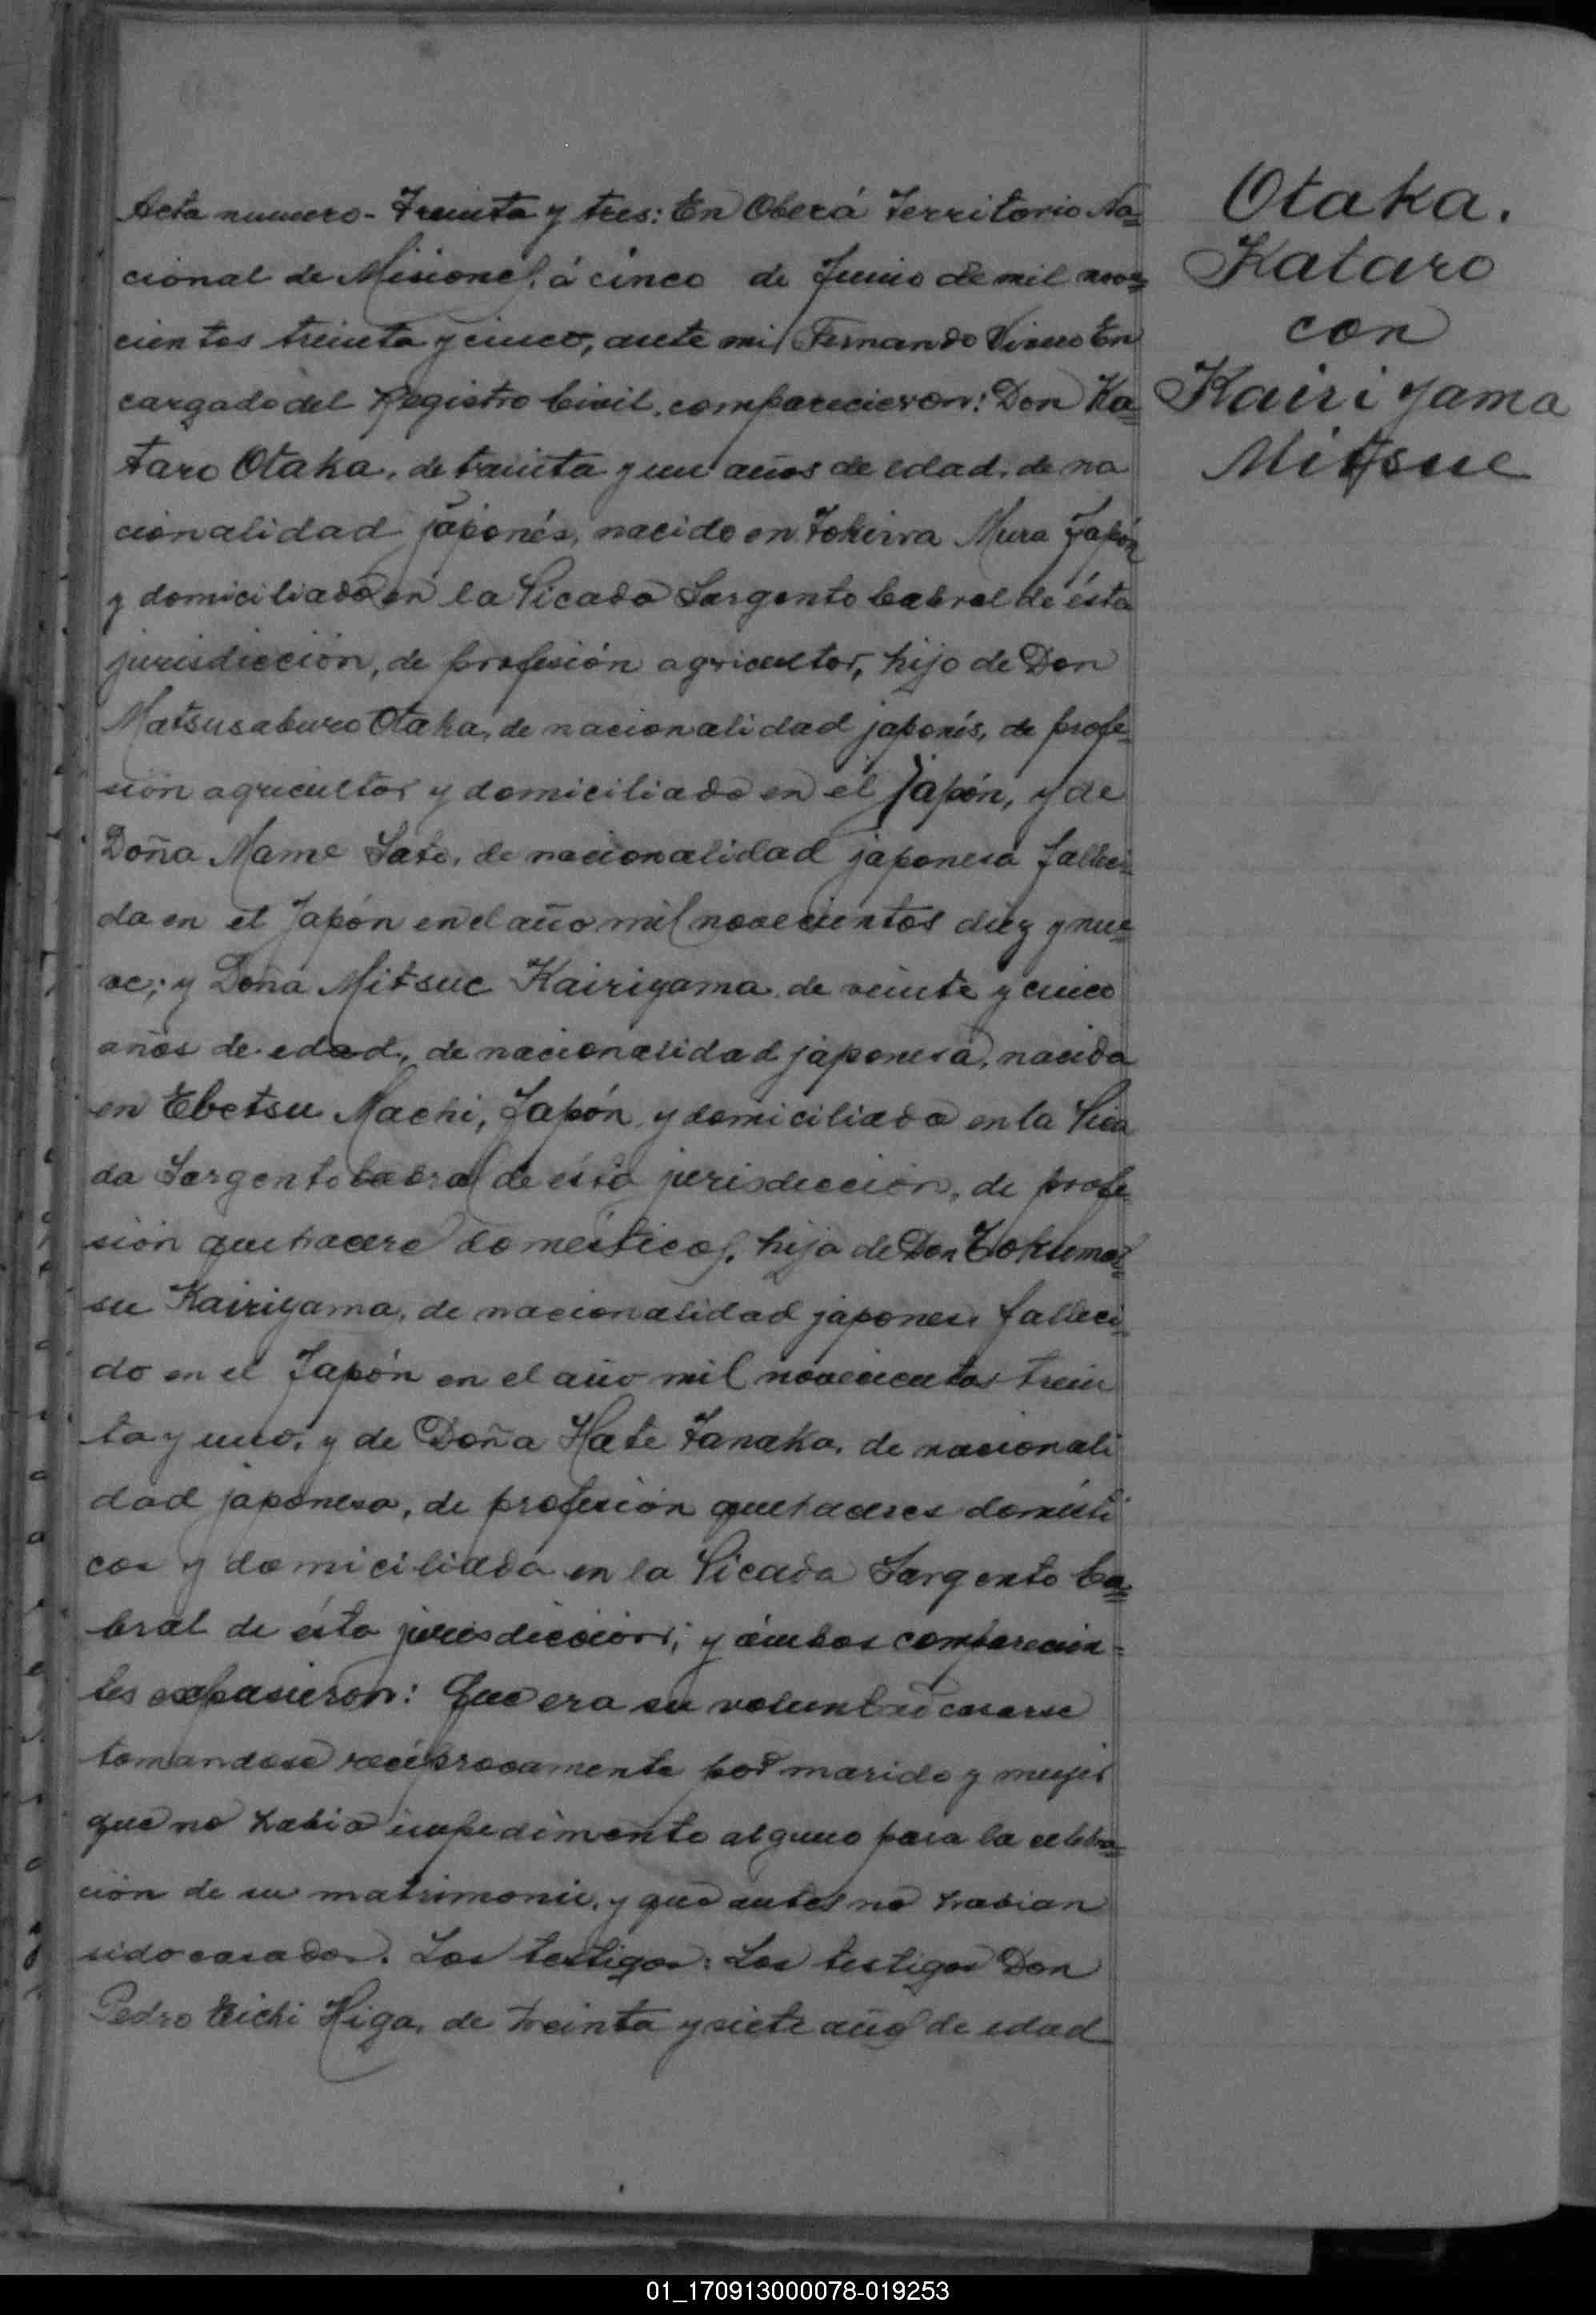 Acta numero - Treinta y tres: En Oberá Territorio Na=
cional de Misiones, á cinco de Junio de mil nove=
cientos treinta y cinco, ante mi, Fernando Vivero En
cargado del Registro Civil, comparecieron: Don Ka=
taro Otaka, de treinta y un años de edad, de na
cionalidad japonés, nacido en Tokirra Mura Japón
y domiciliado en la Picada Sargento Cabral de ésta
jurisdicción, de profesión agricultor, hijo de Don
Matsusaburo Otaka, de nacionalidad japonés, de profe=
sión agricultor y domiciliado en el Japón, y de
Doña Mame Sato, de nacionalidad japonesa falleci=
da en el Japón en el año mil novecientos diez y nue=
ve; y Doña Mitsue Kairiyama, de veinte y cinco
años de edad, de nacionalidad japonesa, nacida
en Ebetsu Machi, Japón, y domiciliada en la Pica
da Sargento Cabral de ésta jurisdicción, de profe
sión quehacere domésticos, hija de Don Tokumat=
su Kairiyama, de nacionalidad japones, falleci=
do en el Japón en el año mil novecientos trein
ta y uno, y de Doña Hate Tanaka, de nacionali
dad japonesa, de profesión quehaceres domésti
cos y domiciliada en la Picada Sargento Ca=
bral de ésta jurisdicción; y ámbos comparecien=
tes expusieron: Que era su voluntad casarse
tomandose reciprocamente por marido y mujer
que no habia impedimento alguno para la celebra=
ción de su matrimonio, y que antes no habian
sido casados. Los testigos: Los testigos Don
Pedro Eichi Higa, de treinta y siete años de edad
Otaka.
Kataro
con
Kairiyama
Mitsue
01_170913000078-019253